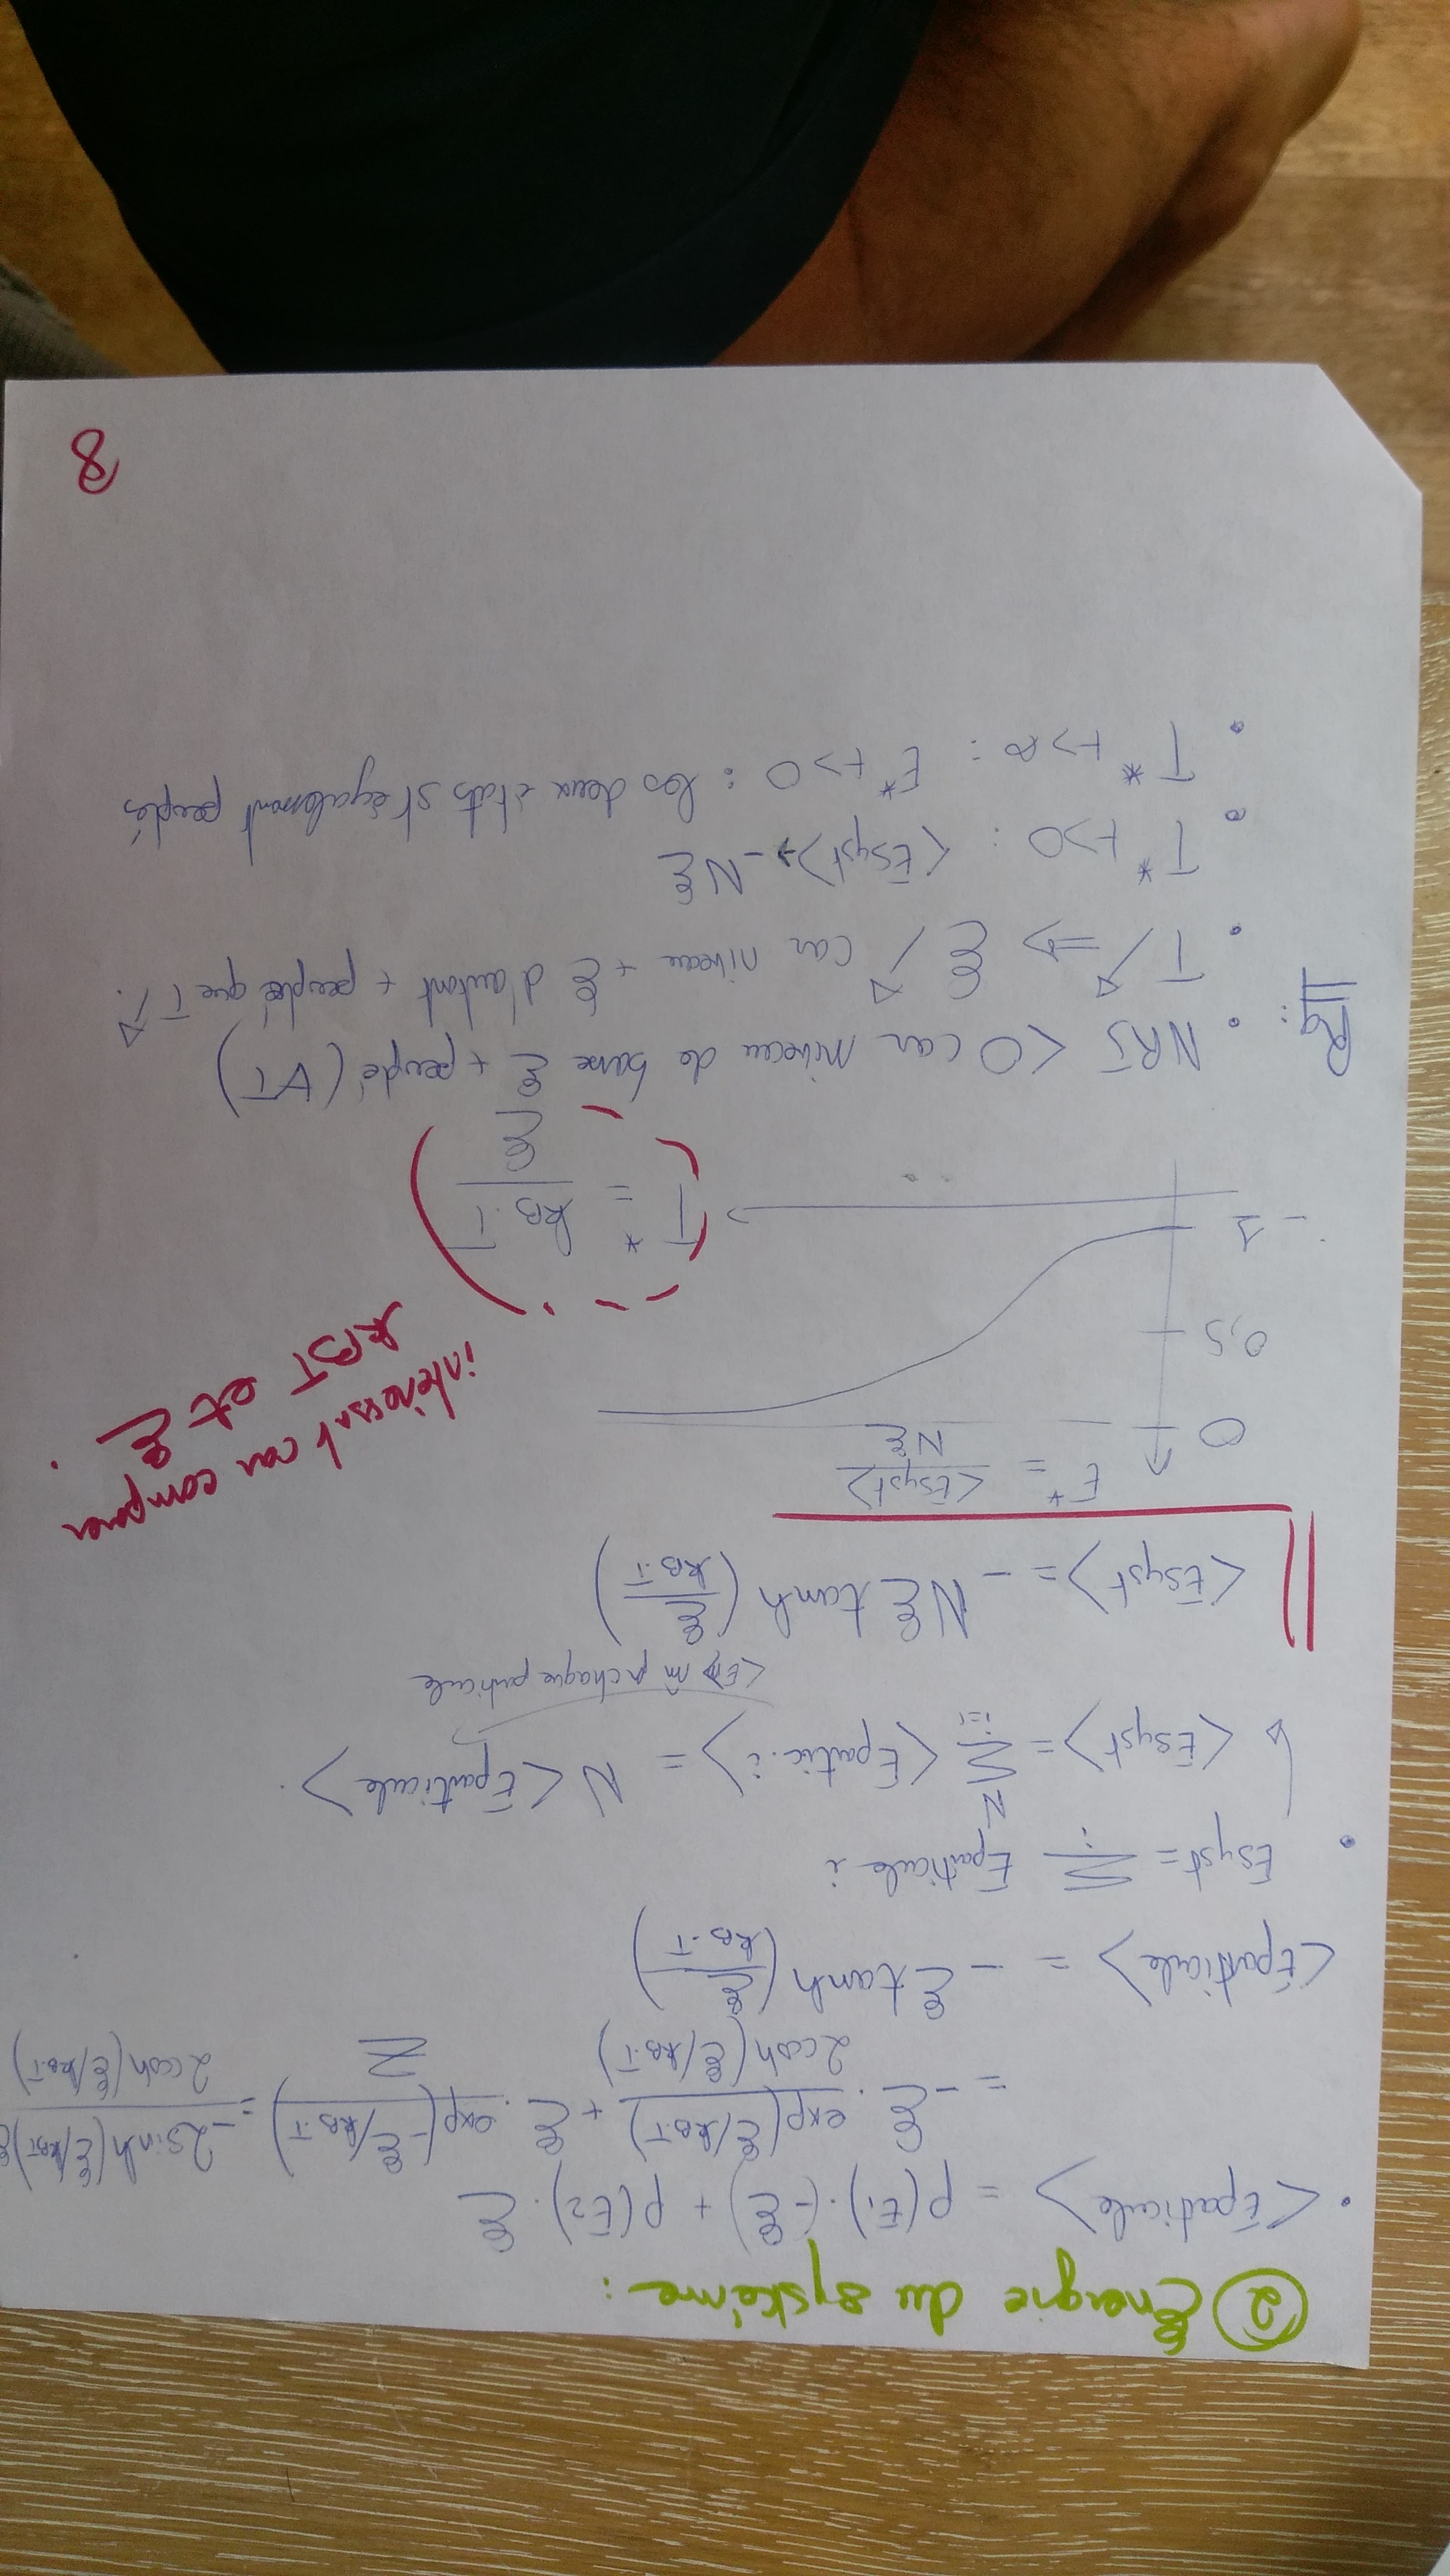 ② Énergie du système :
• <Eparticule> = p(E1).(-ξ) + p(E2).ξ
= -ξ . exp(ξ/kB.T) / 2cosh(ξ/kB.T) + ξ . exp(-ξ/kB.T) / Z = -2sinh(ξ/kBT)ξ / 2cosh(ξ/kB.T)
<Eparticule> = - ξ tanh(ξ/kB.T)
• Esyst = Σi Eparticule i
<Esyst> = Σ(i=1, N) <Epartic.i> = N <Eparticule>.
<E> m̂ p chaque particule
<Esyst> = - Nξ tanh(ξ/kB.T)
E* = <Esyst> / Nξ
0
0,5
-1
T* = kB.T / ξ
intéressant car comparer
kBT et ξ.
Rq :
• NRJ < 0 car niveau de base ξ + peuplé (∀T)
• T ↗ => ξ ↗ car niveau + ξ d'autant + peuplé que T ↗.
• T* t>0 : <Esyst> → -Nξ
• T* t>∞ : E* t>0 : les deux états st également peuplés
8